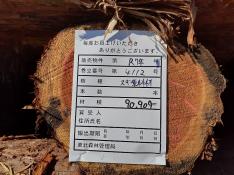 毎度お買上げいただき
ありがとうございます。
販売物件 第 R7年 号
巻立番号 第 4112 号
樹種
本数 本
材積 90.909
買受人
住所氏名
搬出期限 年 月 日
東北森林管理局